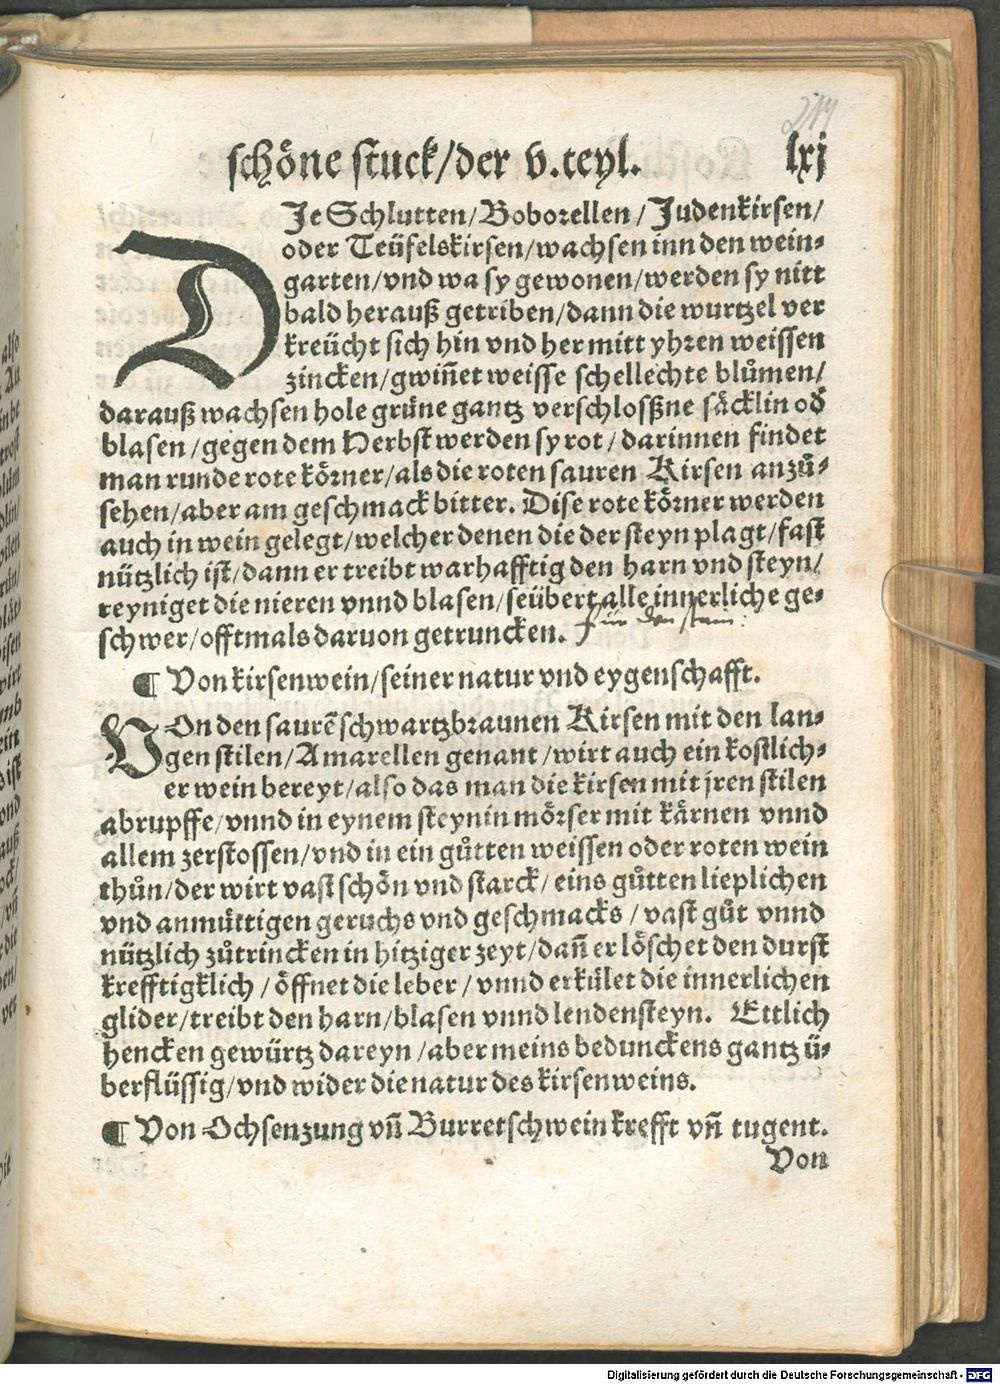 214
schöne stuck/der v.teyl. lxj
DJe Schlutten/Boborellen/Judenkirsen/
oder Teüfelskirsen/wachsen inn den wein-
garten/vnd wa sy gewonen/werden sy nitt
bald herauß getriben/dann die wurtzel ver
kreücht sich hin vnd her mitt yhren weissen
zincken/gwiñet weisse schellechte blůmen/
darauß wachsen hole grüne gantz verschloßne säcklin od
blasen/gegen dem Herbst werden sy rot/darinnen findet
man runde rote körner/als die roten sauren Kirsen anzů-
sehen/aber am geschmack bitter. Dise rote körner werden
auch in wein gelegt/welcher denen die der steyn plagt/fast
nützlich ist/dann er treibt warhafftig den harn vnd steyn/
reyniget die nieren vnnd blasen/seübert alle innerliche ge-
schwer/offtmals daruon getruncken. für den stein:
¶ Von kirsenwein/seiner natur vnd eygenschafft.
VOn den saurẽ schwartzbraunen Kirsen mit den lan-
gen stilen/Amarellen genant/wirt auch ein kostlich-
er wein bereyt/also das man die kirsen mit jren stilen
abrupffe/vnnd in eynem steynin mörser mit kärnen vnnd
allem zerstossen/vnd in ein gůtten weissen oder roten wein
thůn/der wirt vast schön vnd starck/eins gůtten lieplichen
vnd anmüttigen geruchs vnd geschmacks/vast gůt vnnd
nützlich zůtrincken in hitziger zeyt/dañ er löschet den durst
krefftigklich/öffnet die leber/vnnd erkület die innerlichen
glider/treibt den harn/blasen vnnd lendensteyn. Ettlich
hencken gewürtz dareyn/aber meins bedunckens gantz ü-
berflüssig/vnd wider die natur des kirsenweins.
¶ Von Ochsenzung vñ Burretschwein krefft vñ tugent.
Von
Digitalisierung gefördert durch die Deutsche Forschungsgemeinschaft - DFG